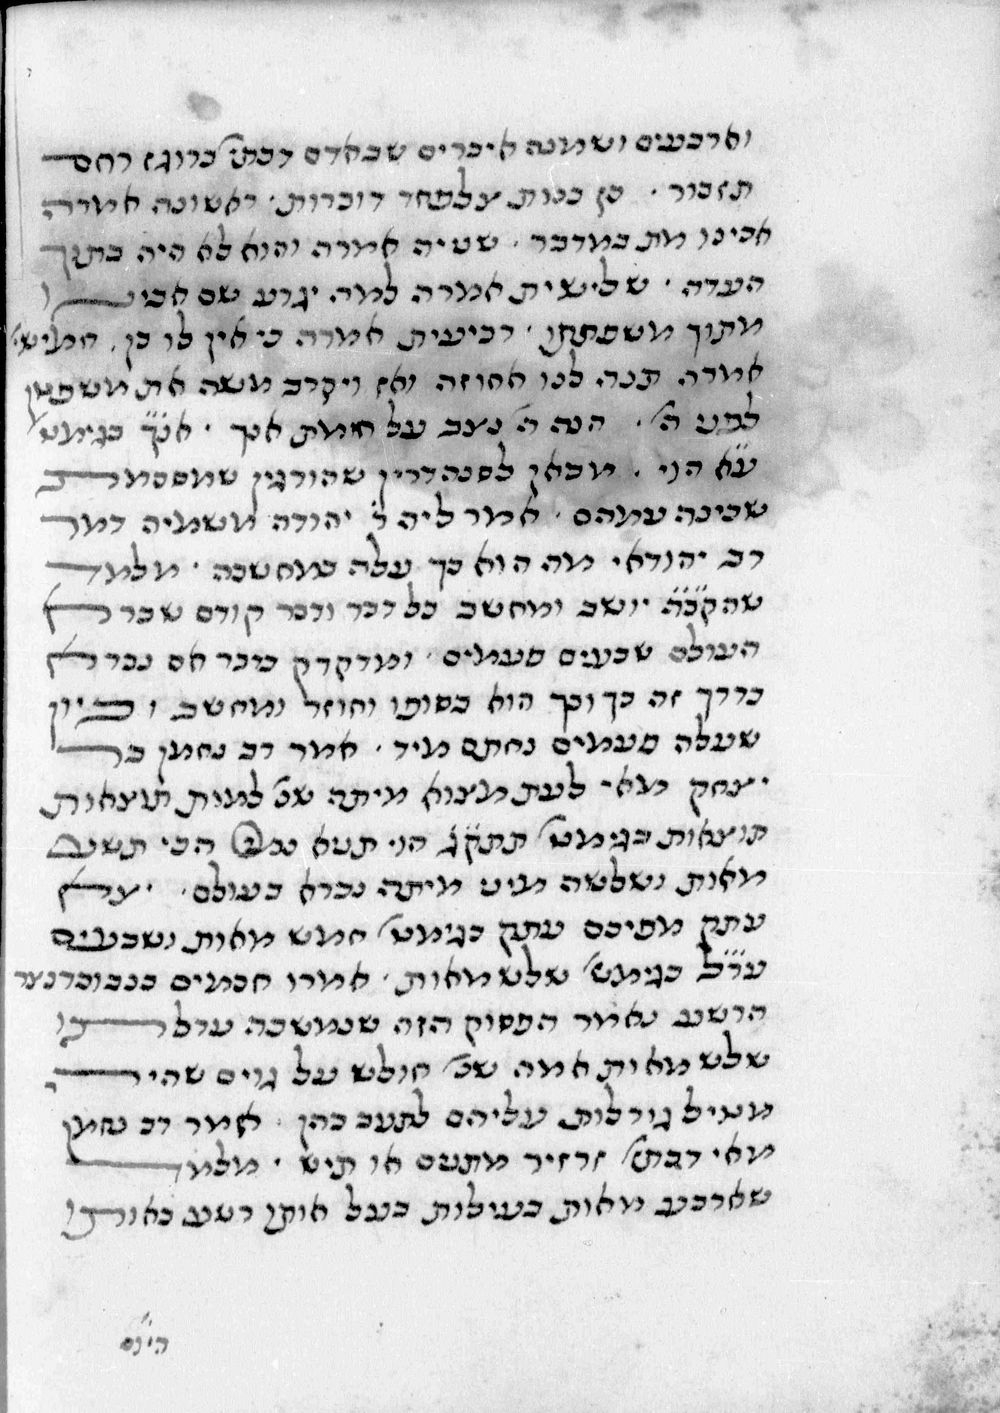 וארבעים ושמנה איברים שבאדם דכתי׳ ברוגז רחם
תזכור · כן בנות צלפחד דוברות · ראשונה אמרה
אבינו מת במדבר · שנייה אמרה והוא לא היה בתוך
העדה · שלישית אמרה למה יגרע שם אבינו
מתוך משפחתו · רביעית אמרה כי אין לו בן · חמישי׳
אמרה תנה לנו אחוזה ואז ויקרב משה את משפטן
לפני ה׳ · הנה ה׳ נצב על חומת אנך · אנ״ך בגימט׳
ע״א הוי · מכאן לסנהדרין שהורגין שמסכמת
שכינה עמהם · אמר ליה ר׳ יהודה משמיה דמר
רב יהודאי מה הוא כך עלה במחשבה · מלמד
שהקב״ה יושב ומחשב כל דבר ודבר קודם שברא
העולם שבעים פעמים · ומדקדק כיצר אם נברא
בדרך זה כך וכך הוא בסופו וחוזר ומחשב וכיון
שעלה פעמים נחתם מיד · אמר רב נחמן בר
יצחק מאי לעת מצוא מיתה שנ׳ למות תוצאות
תוצאות בגימט׳ תתק״ג הוי תנא נמי הכי תשע
מאות ושלשה מיני מיתה נברא בעולם · יצא
עתק מפיכם עתק בגימט׳ חמש מאות ושבעים
ער״ל בגימט׳ שלש מאות · אמרו חכמים בנבוכדנצר
הרשע נאמר הפסוק הזה שנמשכה ערלתו
שלש מאות אמה שנ׳ חולש על גוים שהיה
מטיל גורלות עליהם לתעב בהן · אמר רב נחמן
מאי דכתי׳ זרזיר מתנים או תיש · מלמד
שארבע מאות בעילות בעל אותו רשע באותו
היום